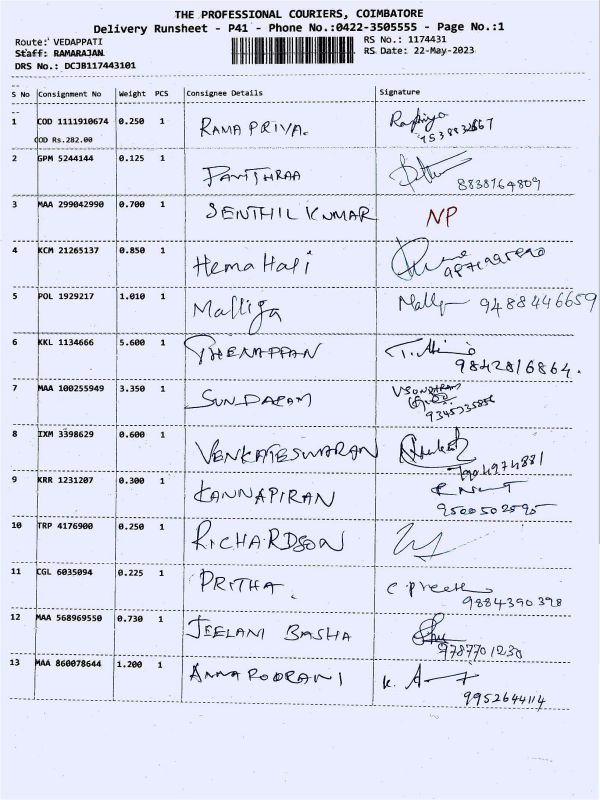 THE PROFESSIONAL COURIERS, COIMBATORE
Delivery Runsheet - P41 - Phone No.:0422-3505555 - Page No.:1
Route: VEDAPPATI
RS No.: 1174431
Staff: RAMARAJAN
RS Date: 22-May-2023
DRS No.: DCJB117443101
S No Consignment No Weight PCS Consignee Details Signature
1 COD 1111910674 0.250 1 RAMA PRIYA.
COD Rs.282.00
2 GPM 5244144 0.125 1 PAVITHRAA
8838764809
3 MAA 299042990 0.700 1 SENTHIL KUMAR NP
4 KCM 21265137 0.850 1 Hema Hali
5 POL 1929217 1.010 1 Malliga 9488446659
6 KKL 1134666 5.600 1 THENAPPAN
9842816864.
7 MAA 100255949 3.350 1 SUNDARAM
8 IXM 3398629 0.600 1 VENKATESWARAN
7904974881
9 KRR 1231207 0.300 1 KANNAPIRAN
9500502595
10 TRP 4176900 0.250 1 RICHARDSON
11 CGL 6035094 0.225 1 PRITHA.
9884390398
12 MAA 568969550 0.730 1 JEELANI BASHA
9787701230
13 MAA 860078644 1.200 1 ANNAPOORANI K.
9952644114